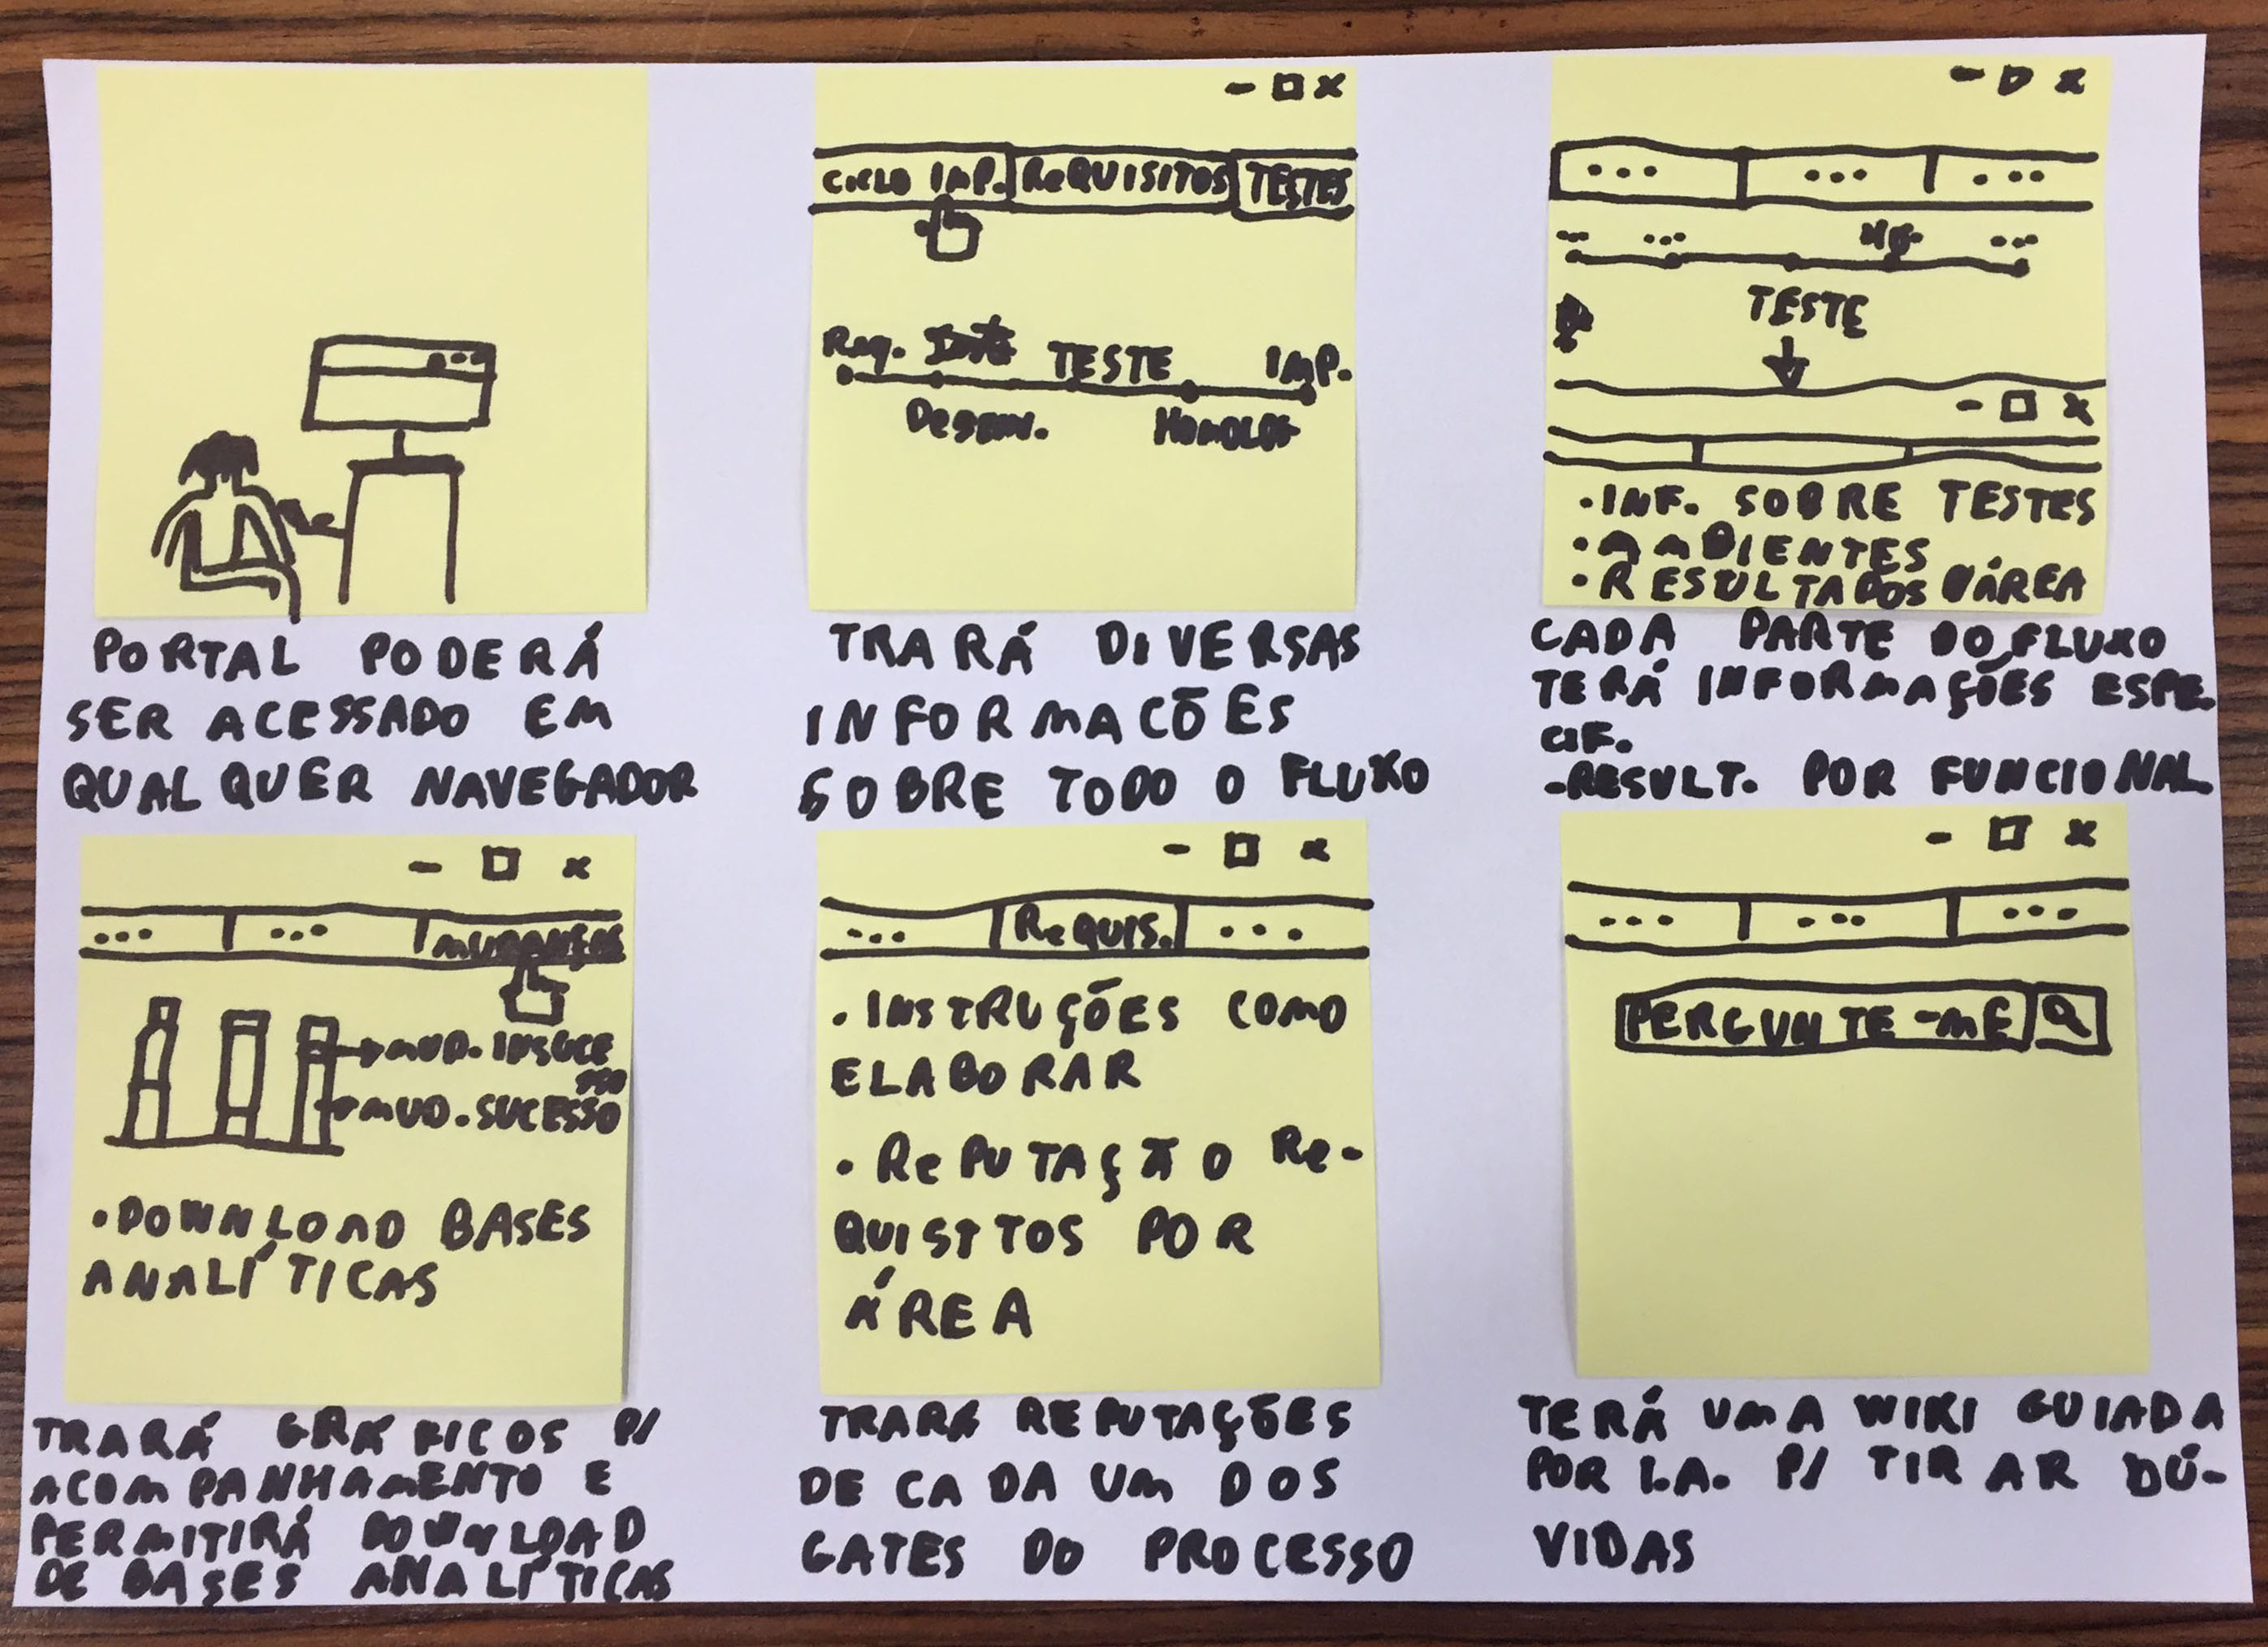 CICLO IMP. REQUISITOS TESTES
Req. TESTE IMP.
Desenv. HOMOLOG
PORTAL PODERÁ
SER ACESSADO EM
QUALQUER NAVEGADOR
TRARÁ DIVERSAS
INFORMACÕES
SOBRE TODO O FLUXO
... ... ...
... ... ...
TESTE
.INF. SOBRE TESTES
.AMBIENTES
.RESULTADOS P/ÁREA
CADA PARTE DO FLUXO
TERÁ INFORMAÇÕES ESPE.
CIF.
-RESULT. POR FUNCIONAL
... ... MUDANÇAS
MUD. INSUCE
SSO
MUD. SUCESSO
.DOWNLOAD BASES
ANALÍTICAS
TRARÁ GRÁFICOS P/
ACOMPANHAMENTO E
PERMITIRÁ DOWNLOAD
DE BASES ANALÍTICAS
... ReQUIS. ...
.INSTRUÇÕES COMO
ELABORAR
.RePUTAÇÃO Re-
QUISITOS POR
ÁREA
TRARÁ REPUTAÇÕES
DE CADA UM DOS
GATES DO PROCESSO
... ... ...
PERGUNTE-ME
TERÁ UMA WIKI GUIADA
POR I.A. P/ TIRAR DÚ-
VIDAS